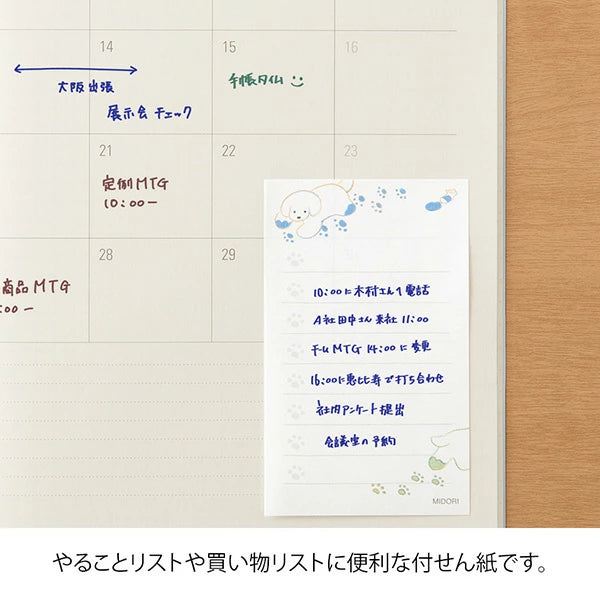 14
15
16
大阪出張
展示会チェック
手帳タイム
21
22
23
定例MTG
10:00ー
28
29
30
商品MTG
:00ー
10:00に木村さんへ電話
A社田中さん来社 11:00
チームMTG 14:00に変更
16:00に恵比寿で打ち合わせ
社内アンケート提出
会議室の予約
MIDORI
やることリストや買い物リストに便利な付せん紙です。